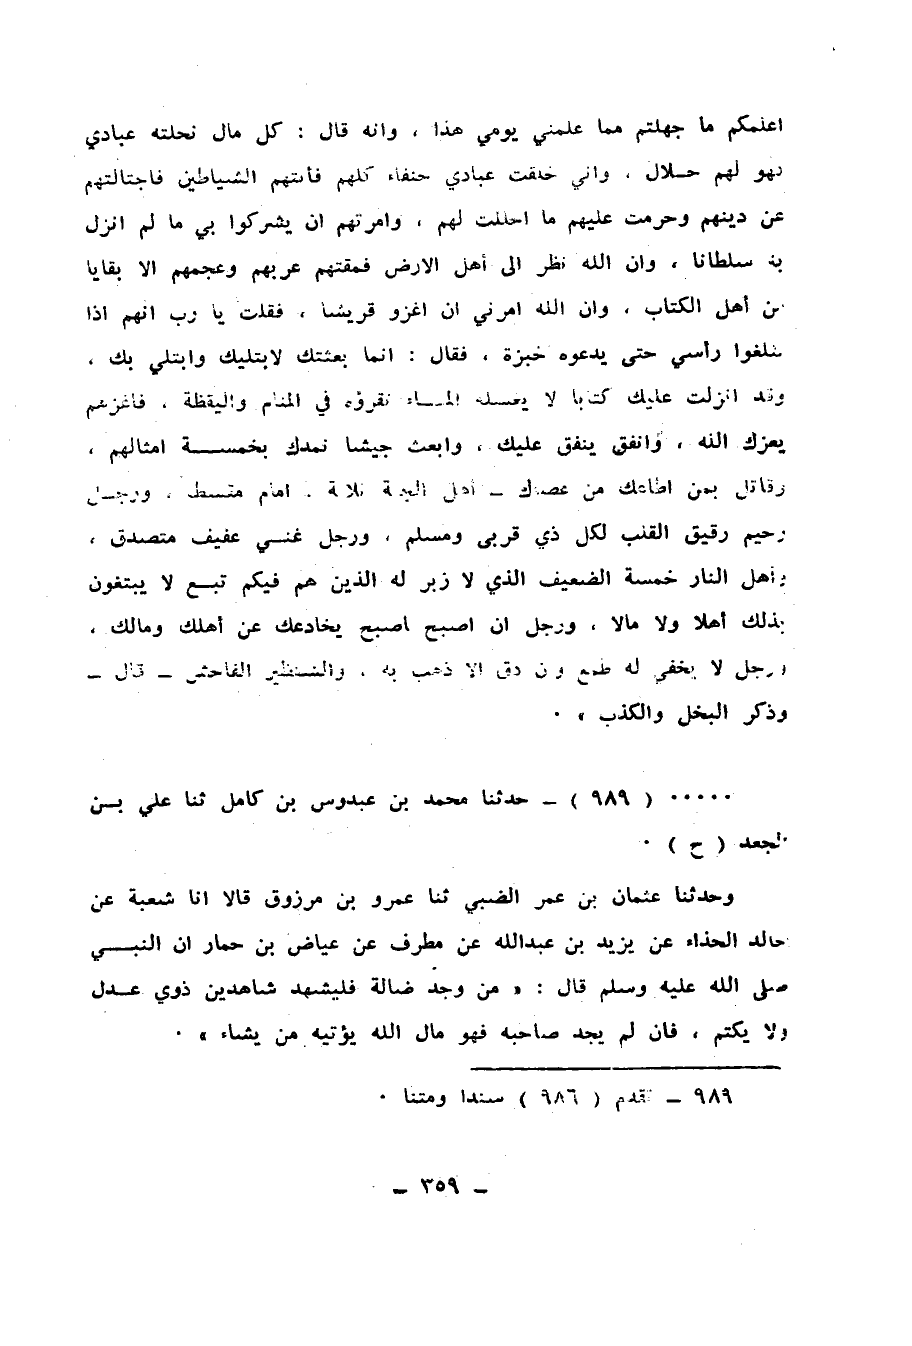 اعلمكم ما جهلتم مما علمني يومي هذا ، وانه قال : كل مال نحلته عبادي
فهو لهم حـلال ، واني خلقت عبادي حنفاء كلهم فأتتهم الشياطين فاجتالتهم
عن دينهم وحرمت عليهم ما احللت لهم ، وامرتهم ان يشركوا بي ما لم انزل
به سلطانا ، وان الله نظر الى أهل الارض فمقتهم عربهم وعجمهم الا بقايا
من أهل الكتاب ، وان الله امرني ان اغزو قريشا ، فقلت يا رب انهم اذا
يثلغوا رأسي حتى يدعوه خبزة ، فقال : انما بعثتك لابتليك وابتلي بك ،
وقد انزلت عليك كتابا لا يغسله المــاء تقرؤه في المنام واليقظة ، فاغزهم
يعزك الله ، وانفق ينفق عليك ، وابعث جيشا نمدك بخمســـة امثالهم ،
وقاتل بمن اطاعك من عصاك ــ أهل الجنة ثلاثة . امام مقسط ، ورجـل
رحيم رقيق القلب لكل ذي قربى ومسلم ، ورجل غنـي عفيف متصدق ،
وأهل النار خمسة الضعيف الذي لا زبر له الذين هم فيكم تبـع لا يبتغون
بذلك أهلا ولا مالا ، ورجل ان اصبح اصبح يخادعك عن أهلك ومالك ،
ورجل لا يخفى له طمع وان دق الا ذهب به ، والشنظير الفاحش ــ قال ــ
وذكر البخل والكذب » ٠
٠٠٠٠٠ ( ٩٨٩ ) ــ حدثنا محمد بن عبدوس بن كامل ثنا علي بـن
الجعد ( ح ) ٠
وحدثنا عثمان بن عمر الضبي ثنا عمرو بن مرزوق قالا انا شعبة عن
خالد الحذاء عن يزيد بن عبدالله عن مطرف عن عياض بن حمار ان النبـــي
صلى الله عليه وسلم قال : « من وجد ضالة فليشهد شاهدين ذوي عـدل
ولا يكتم ، فان لم يجد صاحبه فهو مال الله يؤتيه من يشاء » ٠
٩٨٩ ــ تقدم ( ٩٨٦ ) سندا ومتنا ٠
ــ ٣٥٩ ــ